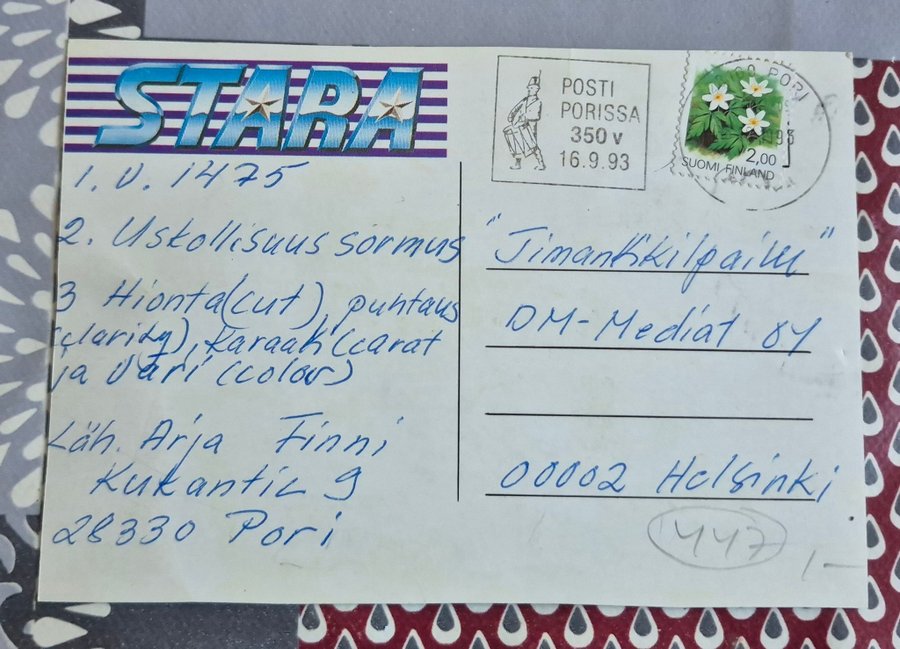 STARA
POSTI
PORISSA
350 v
16.9.93
PORI
93
2,00
SUOMI FINLAND
1. v. 1475
2. Uskollisuus sormus
3 Hionta (cut), puhtaus
(clarity), karaatti (carat
ja väri (color)
Läh. Arja Finni
28330 Pori
"Timanttikilpailu"
DM-Mediat OY
00002 Helsinki
447